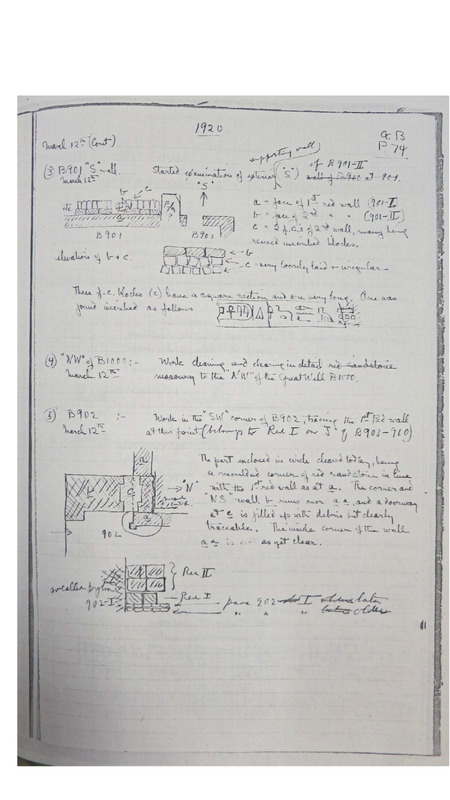 1920
G.B
P 74
March 12th (Cont)
supporting wall
(3) B901 "S" wall. Started examination of exterior ("S") of B901-II
March 12th wall of B940 at 901.
"S"
a = face of 1st red wall (901-I)
b = face of 2nd " " (901-II)
c = 2 f.c.s of 2nd wall, many being
reused inscribed blocks.
b c
B901 B901
elevation of b + c
b
c - very loosely laid & irregular
These f.c. blocks (c) have a square section and are very long. One was
found inscribed as follows
(4) "NW" of B1000:- Work clearing and clearing in detail red sandstone
March 12th masonry to the "NW" of the Great Wall B1000.
(5) B902 :- Work in the "SW" corner of B902, tracing the 1st Red wall
March 12th at this point (belongs to "Red I on S" of B903-910)
The part enclosed in circle cleared today, being
a moulded corner of red sandstone in line
with the 1st red wall as at a. The corner and
"NS" wall b runs over a a, and a doorway
at c is filled up with debris but clearly
traceable. The inside corner of the wall
a a is not as yet clear.
a
b
c
"N"
902
Red II
so called pylon
Red I
902-I
pave 902 I later
" " " older